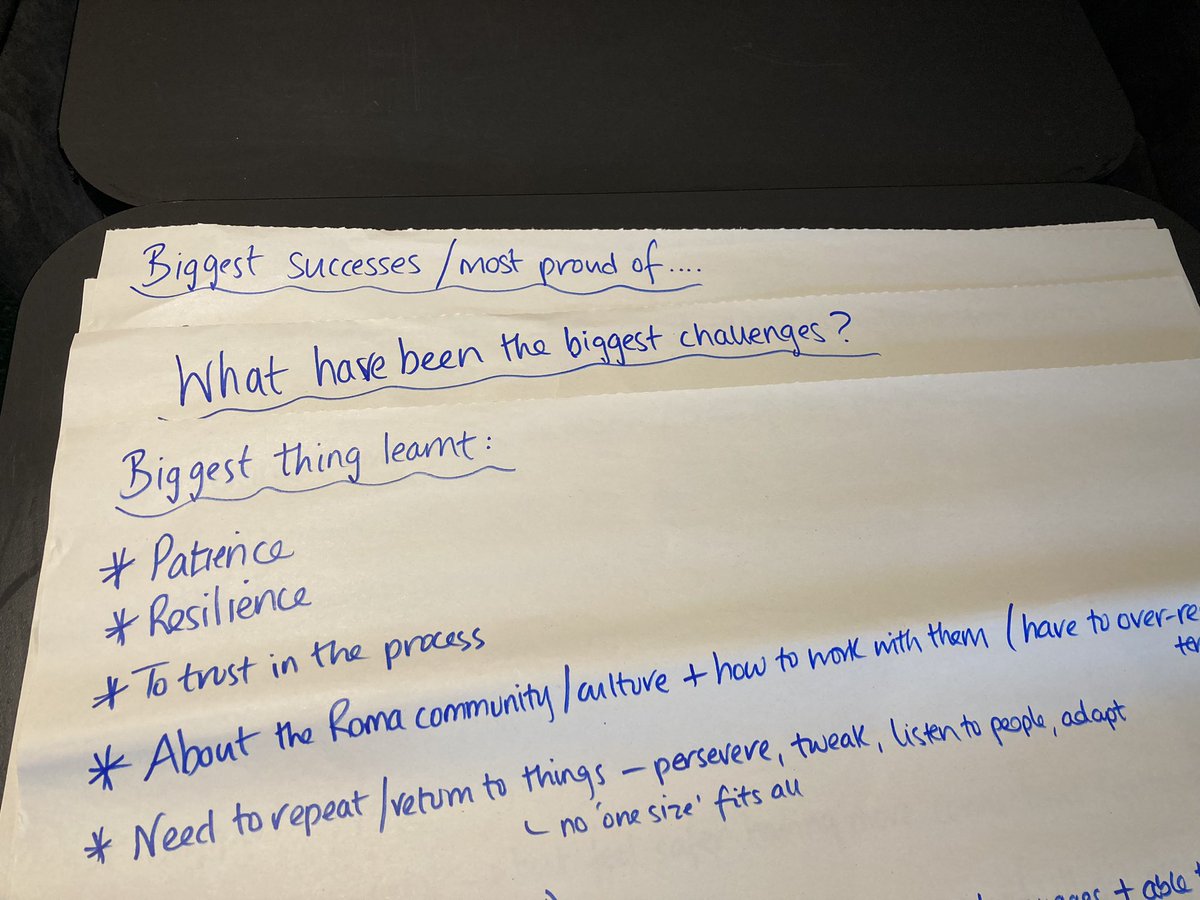 Biggest successes / most proud of....
What have been the biggest challenges?
Biggest thing learnt:
* Patience
* Resilience
* To trust in the process
* About the Roma community / culture + how to work with them (have to over-re
* Need to repeat / return to things – persevere, tweak, listen to people, adapt
no 'one size' fits all
+ able